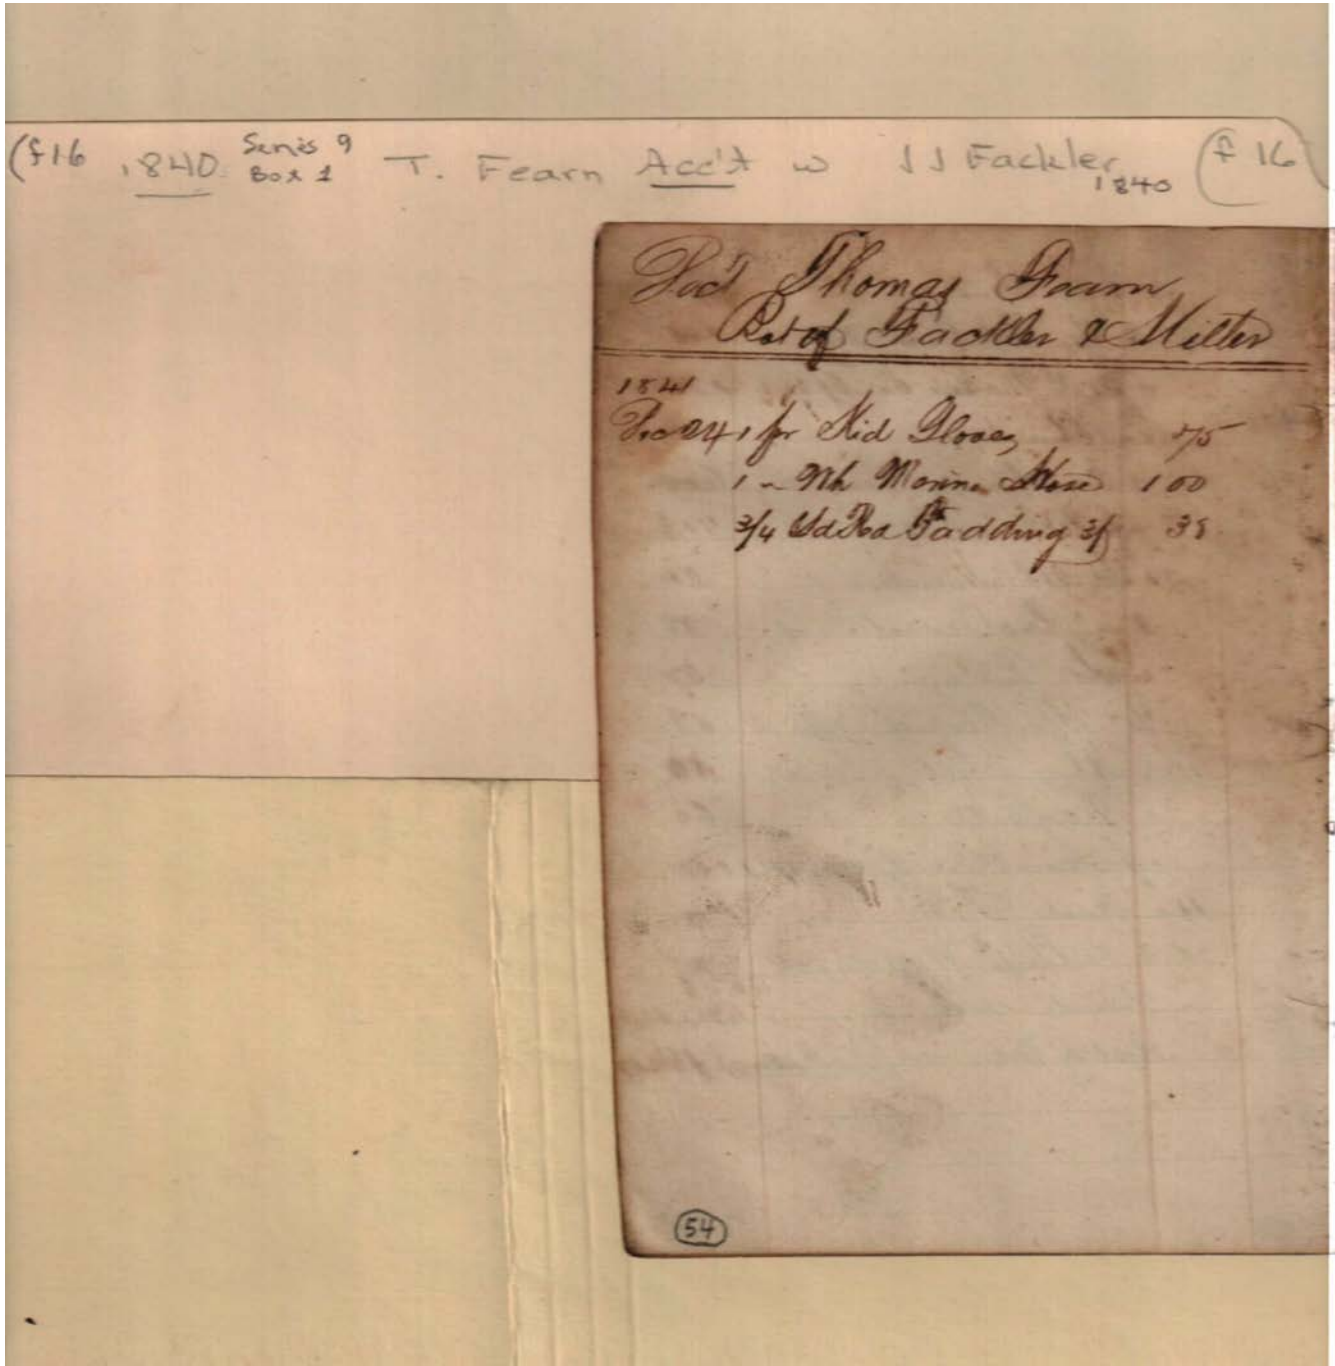 (f16 1840 Series 9 Box 1 T. Fearn Acc't w J J Fackler 1840 (f 16
Doct Thomas Fearn
Bot of Fackler & Miller
1841
Dec 24 1 pr Kid Gloves 75
1 " Wh Merino Hose 1 00
3/4 Yd Padding 3/ 38
54